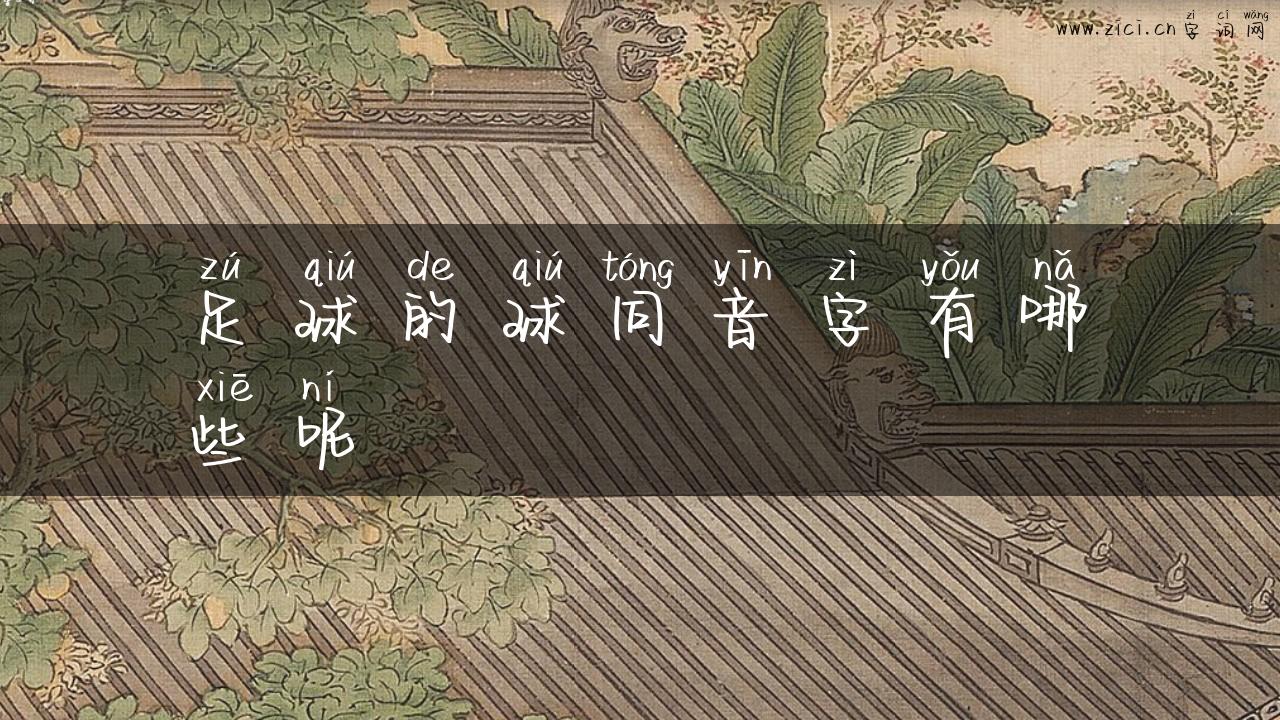 zì cí wǎng
www.zici.cn 字 词 网
zú qiú de qiú tóng yīn zì yǒu nǎ
足 球 的 球 同 音 字 有 哪
xiē ní
些 呢